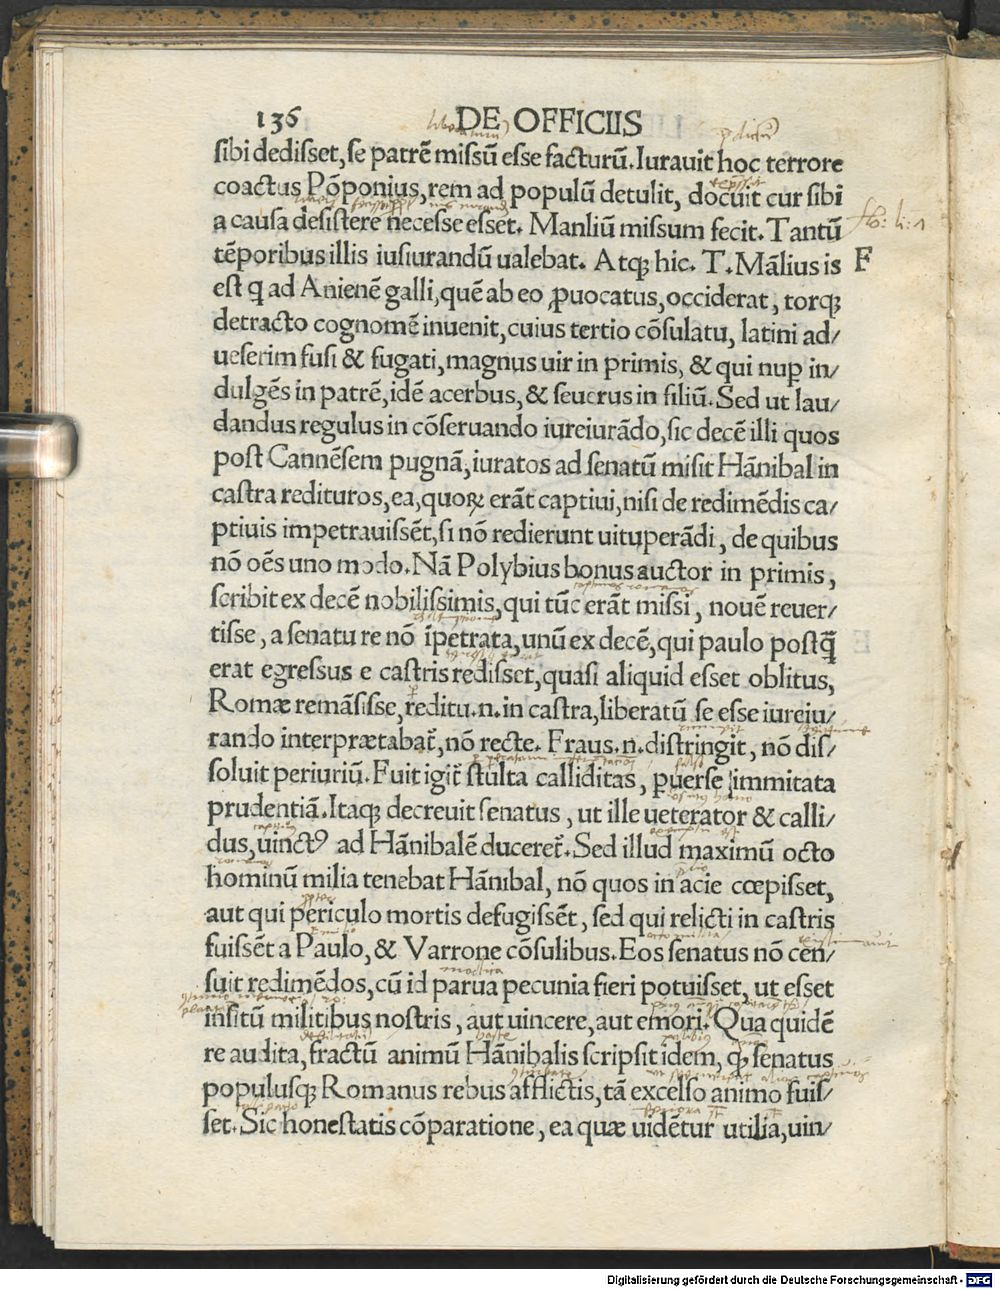 136 DE OFFICIIS
sibi dedisset, se patrē missū esse facturū. Iurauit hoc terrore
coactus Pōponius, rem ad populū detulit, docuit cur sibi
a causa desistere necesse esset. Manliū missum fecit. Tantū
tēporibus illis iusiurandū ualebat. Atq; hic. T. Mālius is F
est q ad Anienē galli, quē ab eo ꝓuocatus, occiderat, torq;
detracto cognomē inuenit, cuius tertio cōsulatu, latini ad/
ueserim fusi & fugati, magnus uir in primis, & qui nuꝑ in/
dulgēs in patrē, idē acerbus, & seuerus in filiū. Sed ut lau/
dandus regulus in cōseruando iureiurādo, sic decē illi quos
post Cannēsem pugnā, iuratos ad senatū misit Hānibal in
castra redituros, ea, quoꝝ erāt captiui, nisi de redimēdis ca/
ptiuis impetrauissēt, si nō redierunt uituperādi, de quibus
nō oēs uno modo. Nā Polybius bonus auctor in primis,
scribit ex decē nobilissimis, qui tūc erāt missi, nouē reuer/
tisse, a senatu re nō īpetrata, unū ex decē, qui paulo postq̄
erat egressus e castris redisset, quasi aliquid esset oblitus,
Romæ remāsisse, reditu.n. in castra, liberatū se esse iureiu/
rando interprætabat᷑, nō recte. Fraus.n. distringit, nō dis/
soluit periuriū. Fuit igit᷑ stulta calliditas, ꝑuerse immitata
prudentiā. Itaq; decreuit senatus, ut ille ueterator & calli/
dus, uinctꝰ ad Hānibalē duceret᷑. Sed illud maximū octo
hominū milia tenebat Hānibal, nō quos in acie cœpisset,
aut qui periculo mortis defugissēt, sed qui relicti in castris
fuissēt a Paulo, & Varrone cōsulibus. Eos senatus nō cen/
suit redimēdos, cū id parua pecunia fieri potuisset, ut esset
insitū militibus nostris, aut uincere, aut emori. Qua quidē
re audita, fractū animū Hānibalis scripsit idem, q; senatus
populusq; Romanus rebus afflictis, tā excelso animo fuis/
set. Sic honestatis cōparatione, ea quæ uidētur utilia, uin/
Digitalisierung gefördert durch die Deutsche Forschungsgemeinschaft - DFG